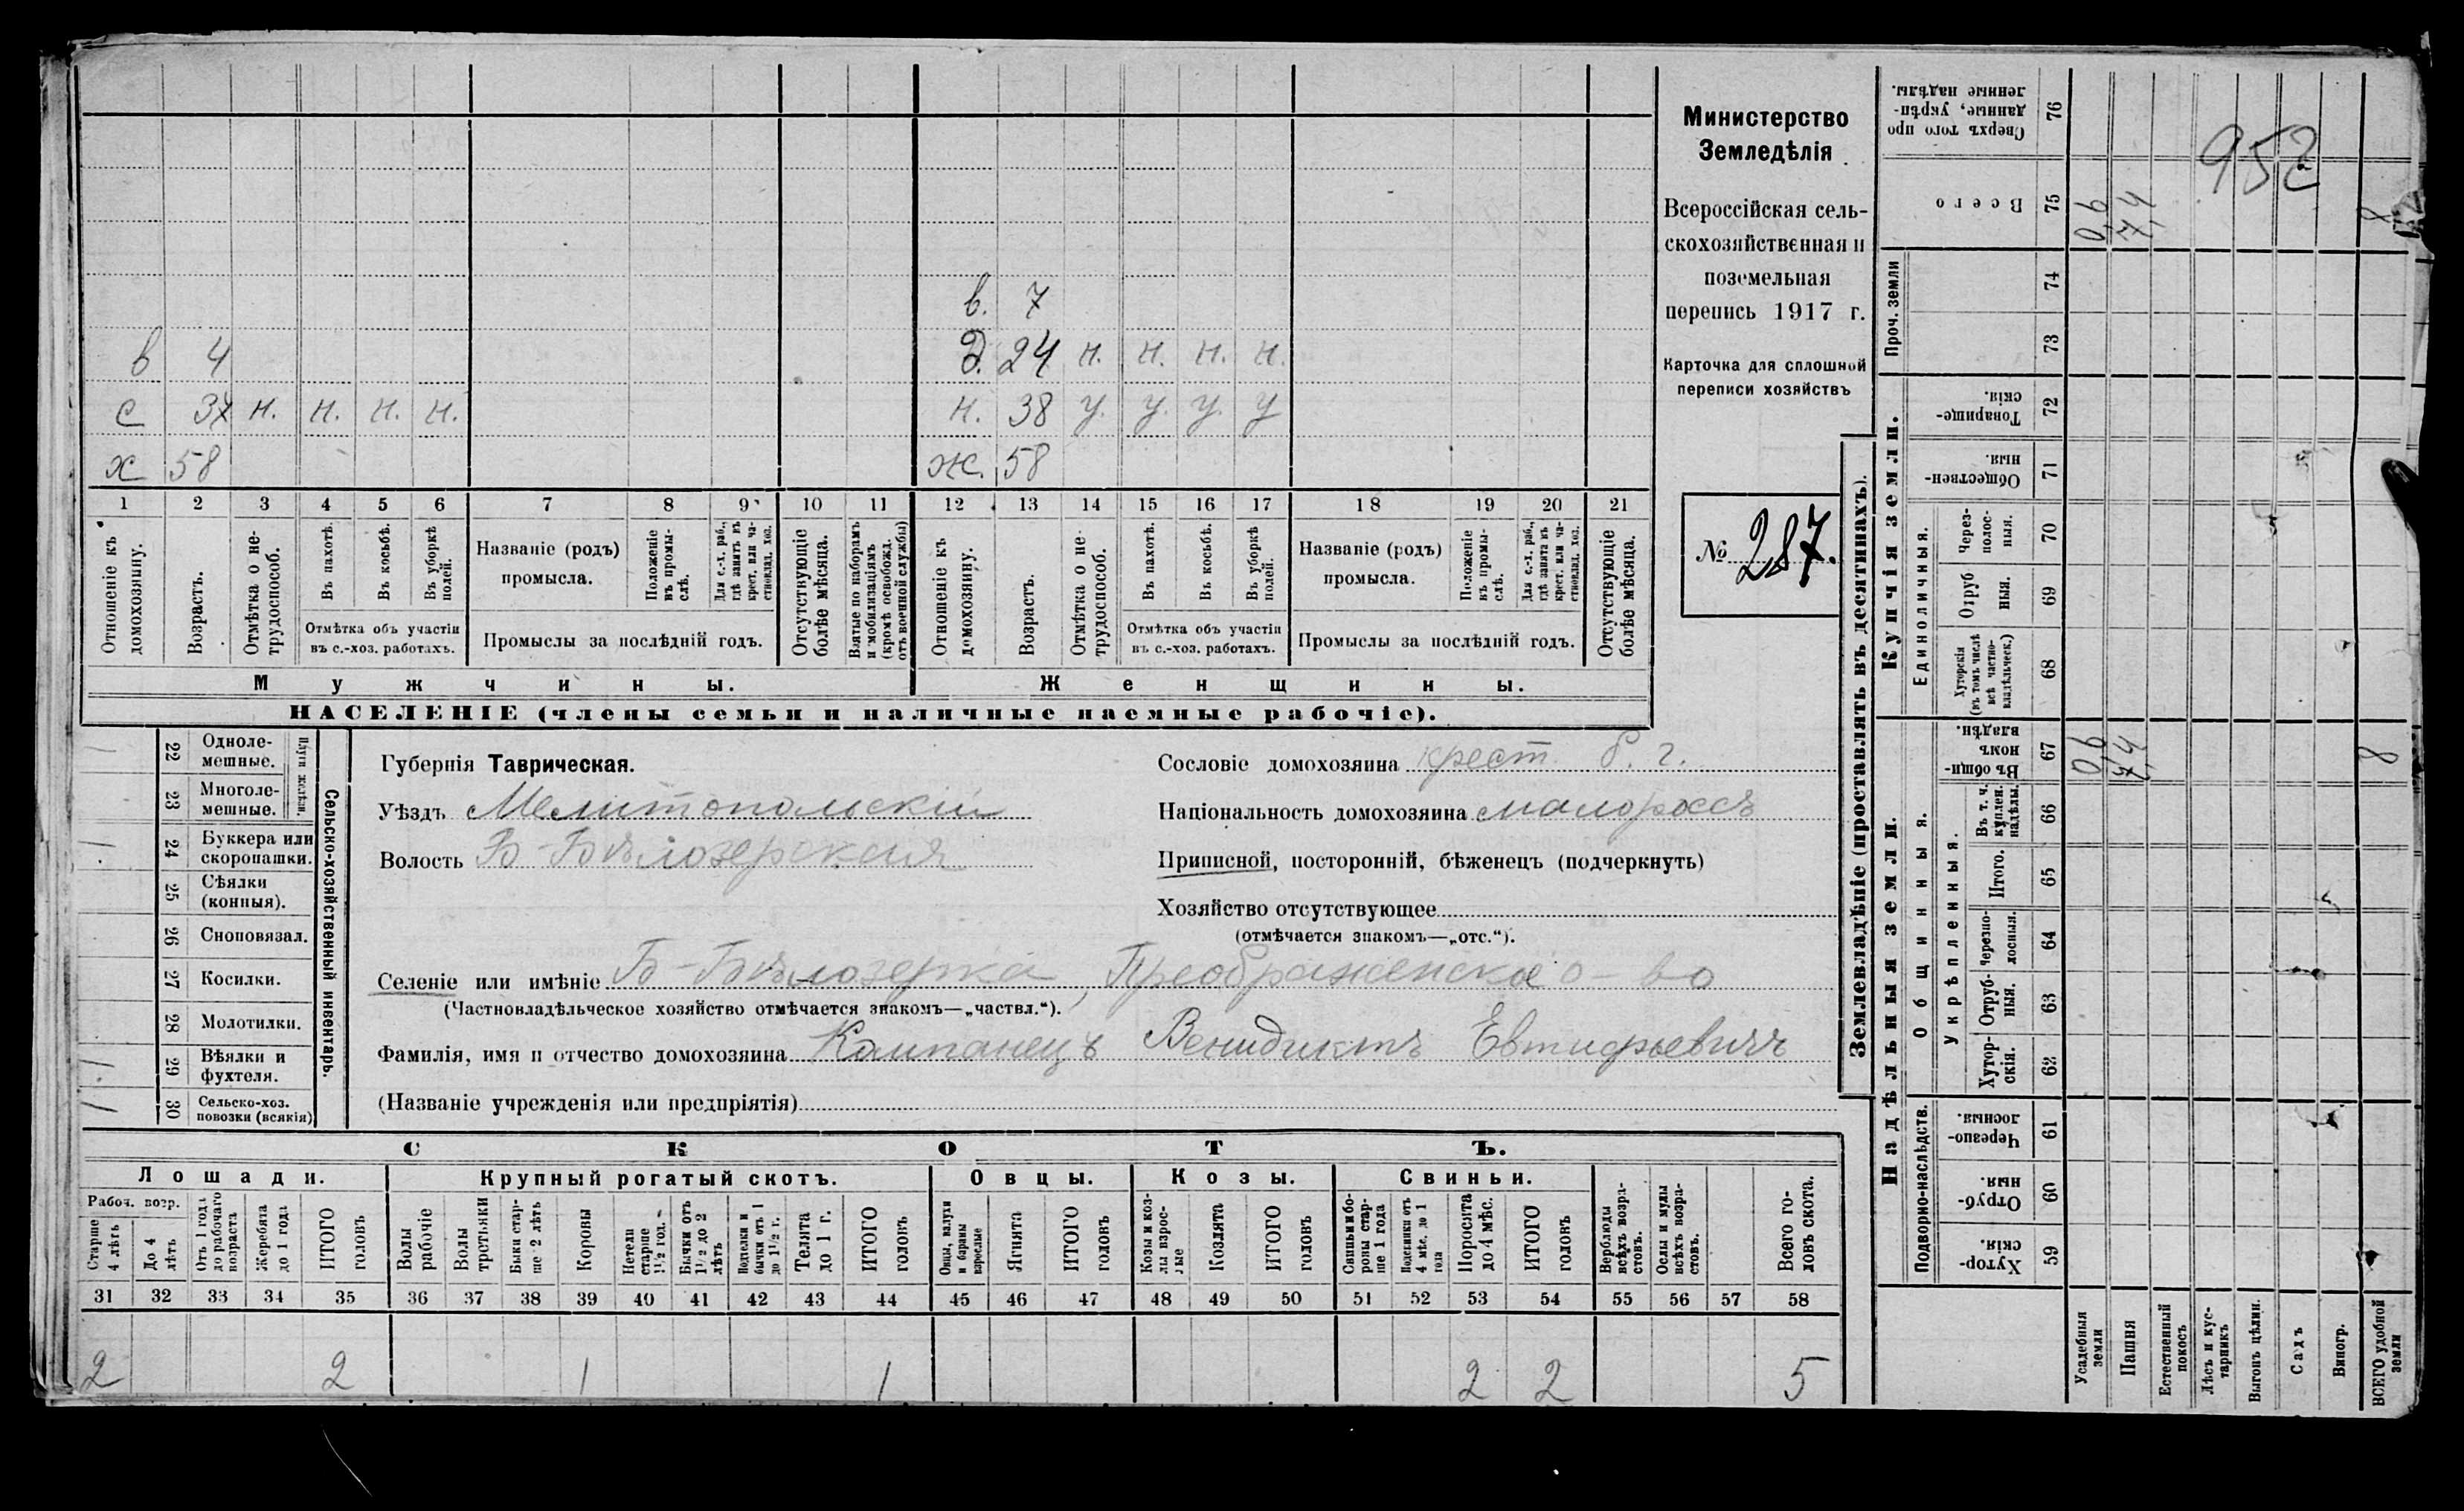 в. 7
в 4
д. 24 н. н. н. н.
с 37 н. н. н. н.
н. 38 у. у. у. у
х 58
ж. 58
1 2 3 4 5 6 7 8 9 10 11 12 13 14 15 16 17 18 19 20 21
Отношеніе къ домохозяину.
Возрастъ.
Отмѣтка о нетрудоспособ.
Въ пахотѣ.
Въ косьбѣ.
Въ уборкѣ полей.
Отмѣтка объ участіи
въ с.-хоз. работахъ.
Названіе (родъ)
промысла.
Положеніе въ промыслѣ.
Для с.-х. раб., гдѣ занятъ въ крест. или частновлад. хоз.
Промыслы за послѣдній годъ.
Отсутствующіе болѣе мѣсяца.
Взятые по наборамъ и мобилизаціямъ (кромѣ освобожд. отъ военной службы)
Отношеніе къ домохозяину.
Возрастъ.
Отмѣтка о нетрудоспособ.
Въ пахотѣ.
Въ косьбѣ.
Въ уборкѣ полей.
Отмѣтка объ участіи
въ с.-хоз. работахъ.
Названіе (родъ)
промысла.
Положеніе въ промыслѣ.
Для с.-х. раб., гдѣ занята въ крест. или частновлад. хоз.
Промыслы за послѣдній годъ.
Отсутствующіе болѣе мѣсяца.
Мужчины.
Женщины.
НАСЕЛЕНІЕ (члены семьи и наличные наемные рабочіе).
Министерство
Земледѣлія
Всероссійская сель-
скохозяйственная и
поземельная
перепись 1917 г.
Карточка для сплошной
переписи хозяйствъ
№ 287.
22 Одноле-
мешные.
23 Многоле-
мешные.
24 Буккера или
скоропашки.
25 Сѣялки
(конныя).
26 Сноповязал.
27 Косилки.
28 Молотилки.
29 Вѣялки и
фухтеля.
30 Сельско-хоз.
повозки (всякія)
Сельско-хозяйственный инвентарь.
Губернія Таврическая.
Уѣздъ Мелитопольскій
Волость Б-Бѣлозерская
Сословіе домохозяина крест. б. г.
Національность домохозяина малороссъ
Приписной, посторонній, бѣженецъ (подчеркнуть)
Хозяйство отсутствующее
(отмѣчается знакомъ—„отс.“).
Селеніе или имѣніе Б-Бѣлозерка, Преображенское о-во
(Частновладѣльческое хозяйство отмѣчается знакомъ—„частвл.“).
Фамилія, имя и отчество домохозяина Компанецъ Венидиктъ Евтифьевичъ
(Названіе учрежденія или предпріятія)
СКОТЪ.
Лошади. Крупный рогатый скотъ. Овцы. Козы. Свиньи.
Рабоч. возр.
Старше 4 лѣтъ
До 4 лѣтъ
Отъ 1 года до рабочаго возраста
Жеребята до 1 года
ИТОГО головъ
Волы рабочіе
Волы третьяки
Быки старше 2 лѣтъ
Коровы
Нетели старше 1½ год.
Бычки отъ 1½ до 2 лѣтъ
Подтелки и бычки отъ 1 до 1½ г.
Телята до 1 г.
ИТОГО головъ
Овцы, валухи и бараны взрослые
Ягнята
ИТОГО головъ
Козы и козлы взрослые
Козлята
ИТОГО головъ
Свиньи и бороны старше 1 года
Подсвинки отъ 4 мѣс. до 1 года
Поросята до 4 мѣс.
ИТОГО головъ
Верблюды всѣхъ возрастовъ.
Ослы и мулы всѣхъ возрастовъ.
Всего головъ скота.
31 32 33 34 35 36 37 38 39 40 41 42 43 44 45 46 47 48 49 50 51 52 53 54 55 56 57 58
2 2 1 1 2 2 5
Землевладѣніе (проставлять въ десятинахъ).
Надѣльныя земли. Купчія земли. Проч. земли
Подворно-наслѣдств.
Общинныя.
Укрѣпленныя.
Единоличныя.
59 Хутор-
скія.
60 Отруб-
ныя.
61 Черезпо-
лосныя.
62 Хутор-
скія.
63 Отруб-
ныя.
64 Черезпо-
лосныя.
65 Итого.
66 Въ т. ч.
куплен.
надѣлы.
67 Въ общи-
номъ
владѣн.
68 Хуторскія
(въ томъ числѣ
всѣ частно-
владѣльческ.)
69 Отруб
ныя.
70 Через-
полос-
ныя.
71 Обществен-
ныя.
72 Товарище-
скія.
73
74
75 Всего
76 Сверхъ того про
данные, укрѣп-
ленные надѣлы.
Усадебныя земли 0,6 0,6
Пашня 7,4 7,4
Естественный покосъ
Лѣсъ и кустарникъ
Выгонъ цѣлин.
Садъ
Виногр.
ВСЕГО удобной земли 8 8
952